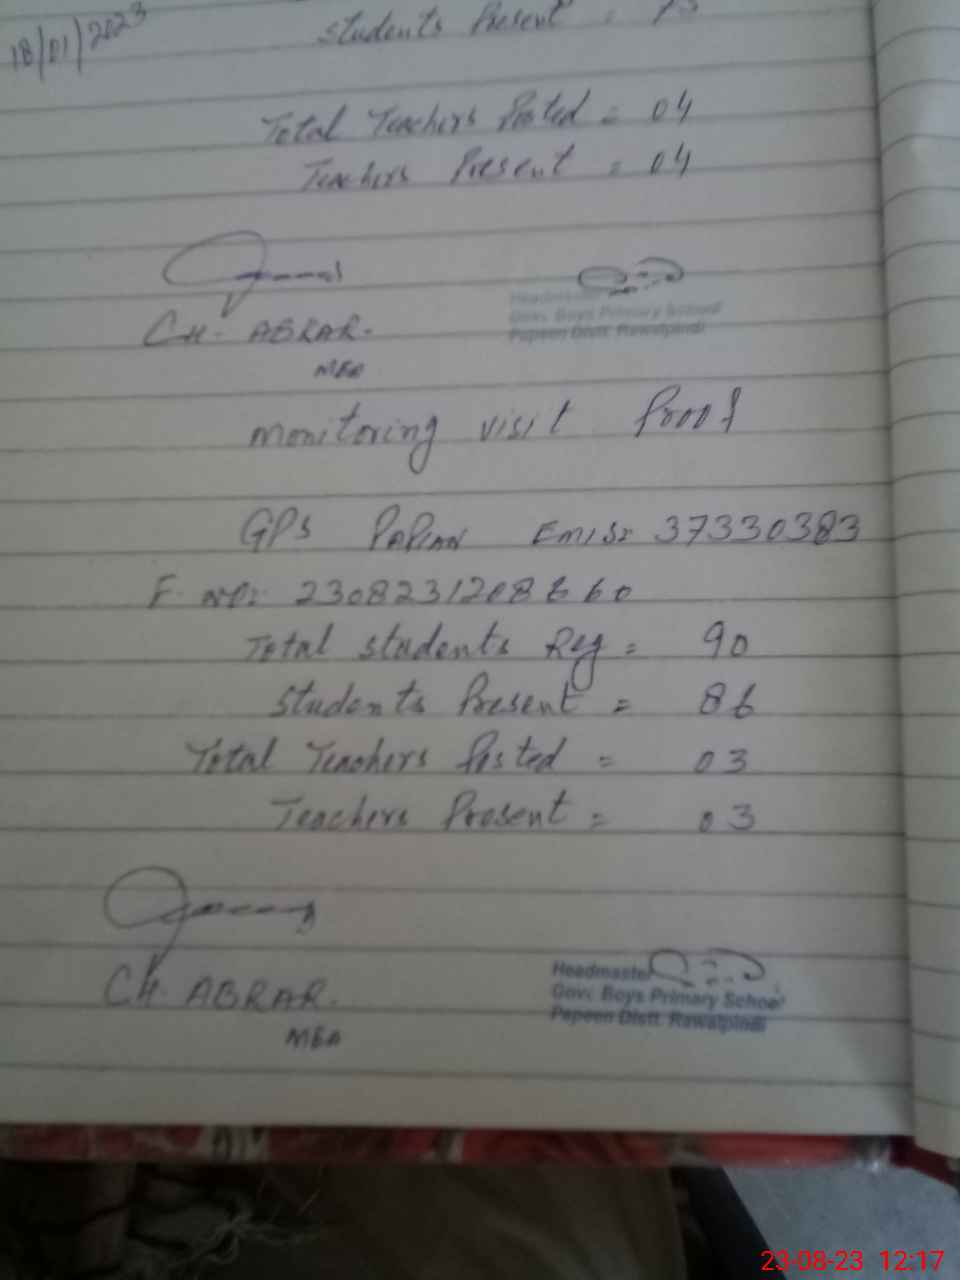 18/01/2023
Students Present = 75
Total Teachers Posted = 04
Teachers Present = 04
CH. ABRAR.
MEA
Headmaster
Govt. Boys Primary School
Papeen Distt. Rawalpindi
monitoring visit Proof
GPS PAPIAN EMIS: 37330383
F. NO: 2308231208660
Total students Reg = 90
Students Present = 86
Total Teachers Posted = 03
Teachers Present = 03
CH. ABRAR.
MEA
Headmaster
Govt. Boys Primary School
Papeen Distt. Rawalpindi
23-08-23 12:17